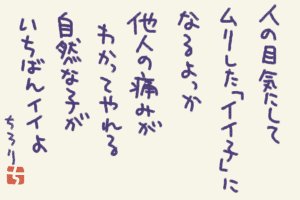 人の目気にして
ムリした「イイ子」に
なるよっか
他人の痛みが
わかってやれる
自然な子が
いちばんイイよ
ちろり